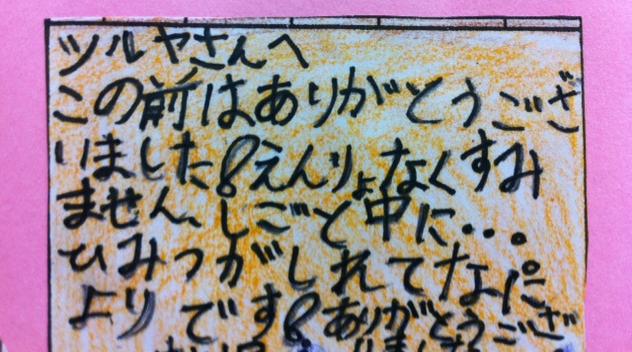 ツルヤさんへ
この前はありがとうござ
いました8えんりょなくすみ
ません、しごと中に・・。
ひみつがしれてなに
よりです8ありがとうござ